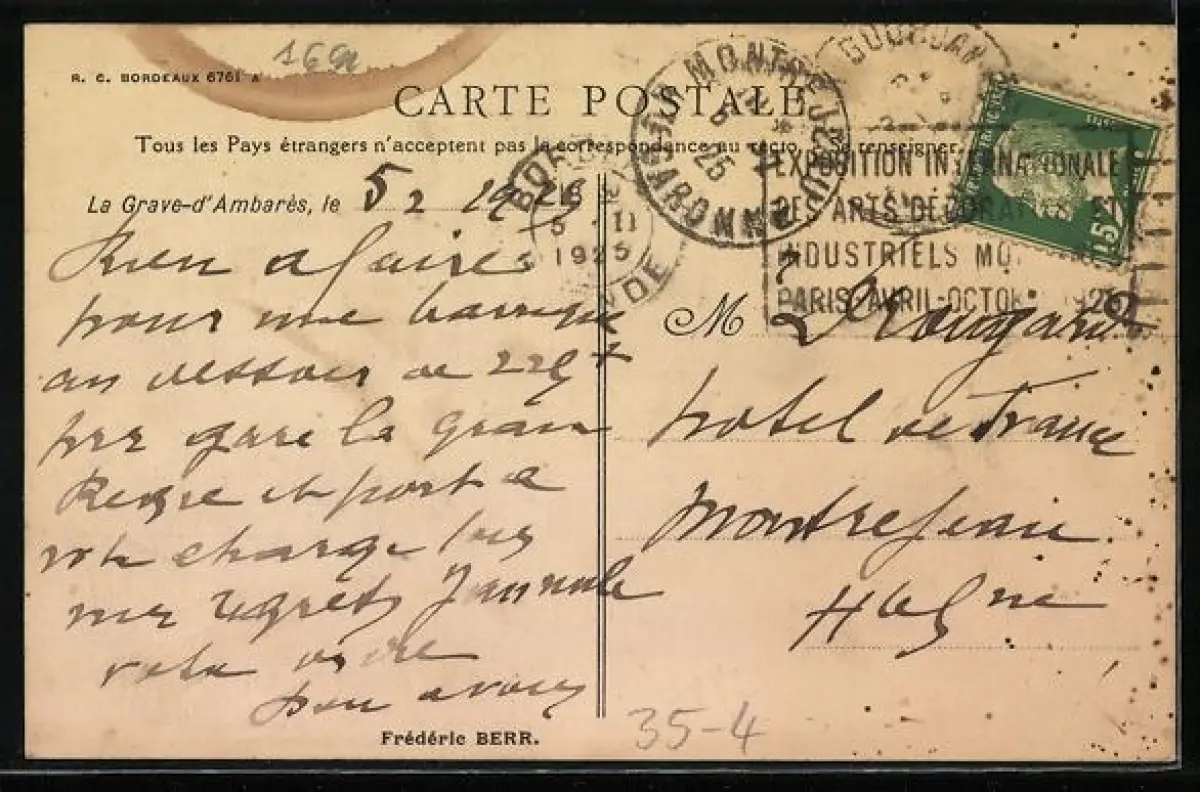 R. C. BORDEAUX 6761 A
CARTE POSTALE
Tous les Pays étrangers n'acceptent pas la correspondance au recto. Se renseigner
La Grave-d'Ambarès, le 5 2 1925
Rien a faire
pour une barrique
au dessous de 225 +
prz gare la grave
et port a
votre charge
mes regrets J'annule
votre ordre
Frédéric BERR.
BORDEAUX
1925
GIRONDE
MONTREJEAU
25
GARONNE
GOURDAN
EXPOSITION INTERNATIONALE
DES ARTS DÉCORATIFS ET
INDUSTRIELS MO
PARIS AVRIL-OCTOBRE 1925
15
M
hotel de France
Montrejeau
Hte Gne
35-4